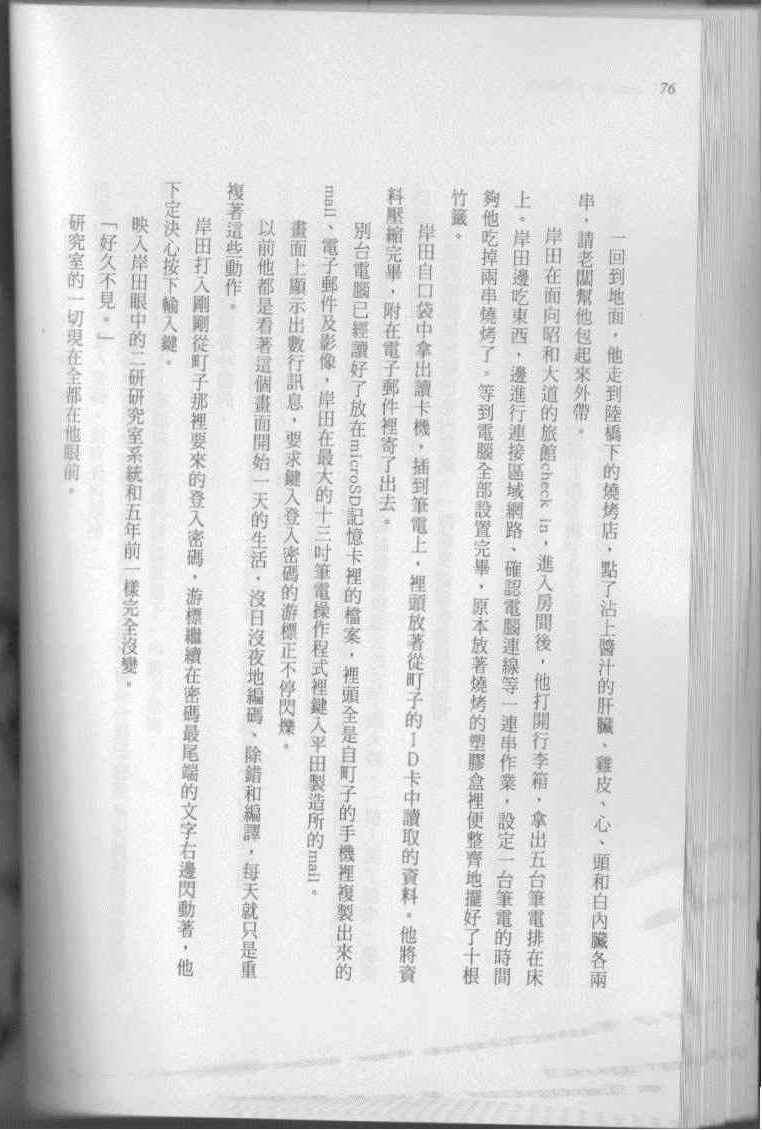 76
一回到地面，他走到陸橋下的燒烤店，點了沾上醬汁的肝臟、雞皮、心、頭和白內臟各兩
串，請老闆幫他包起來外帶。
岸田在面向昭和大道的旅館check in，進入房間後，他打開行李箱，拿出五台筆電排在床
上。岸田邊吃東西，邊進行連接區域網路、確認電腦連線等一連串作業，設定一台筆電的時間
夠他吃掉兩串燒烤了。等到電腦全部設置完畢，原本放著燒烤的塑膠盒裡便整齊地擺好了十根
竹籤。
岸田自口袋中拿出讀卡機，插到筆電上，裡頭放著從町子的ID卡中讀取的資料。他將資
料壓縮完畢，附在電子郵件裡寄了出去。
別台電腦已經讀好了放在microSD記憶卡裡的檔案，裡頭全是自町子的手機裡複製出來的
mail、電子郵件及影像，岸田在最大的十三吋筆電操作程式裡鍵入平田製造所的mail。
畫面上顯示出數行訊息，要求鍵入登入密碼的游標正不停閃爍。
以前他都是看著這個畫面開始一天的生活，沒日沒夜地編碼、除錯和編譯，每天就只是重
複著這些動作。
岸田打入剛剛從町子那裡要來的登入密碼，游標繼續在密碼最尾端的文字右邊閃動著，他
下定決心按下輸入鍵。
映入岸田眼中的二研研究室系統和五年前一樣完全沒變。
「好久不見。」
研究室的一切現在全都在他眼前。